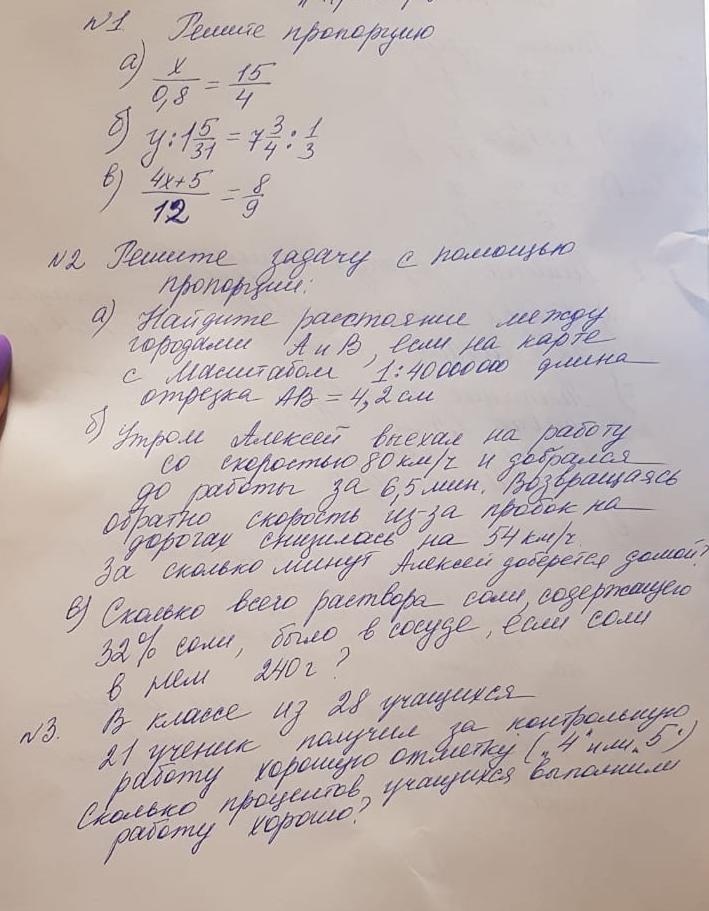 №1. Решите пропорцию
а) x/0,8 = 15/4
б) y : 1 5/31 = 7 3/4 : 1/3
в) 4x+5/12 = 8/9
№2 Решите задачу с помощью
пропорции:
а) Найдите расстояние между
городами А и В, если на карте
с масштабом 1:4000000 длина
отрезка АВ = 4,2 см
б) Утром Алексей выехал на работу
со скоростью 80 км/ч и добрался
до работы за 6,5 мин. Возвращаясь
обратно скорость из-за пробок на
дорогах снизилась на 54 км/ч.
За сколько минут Алексей доберется домой?
в) Сколько всего раствора соли, содержащего
32% соли, было в сосуде, если соли
в нем 240 г?
№3. В классе из 28 учащихся
21 ученик получил за контрольную
работу хорошую отметку („4" или „5")
Сколько процентов учащихся выполнили
работу хорошо?